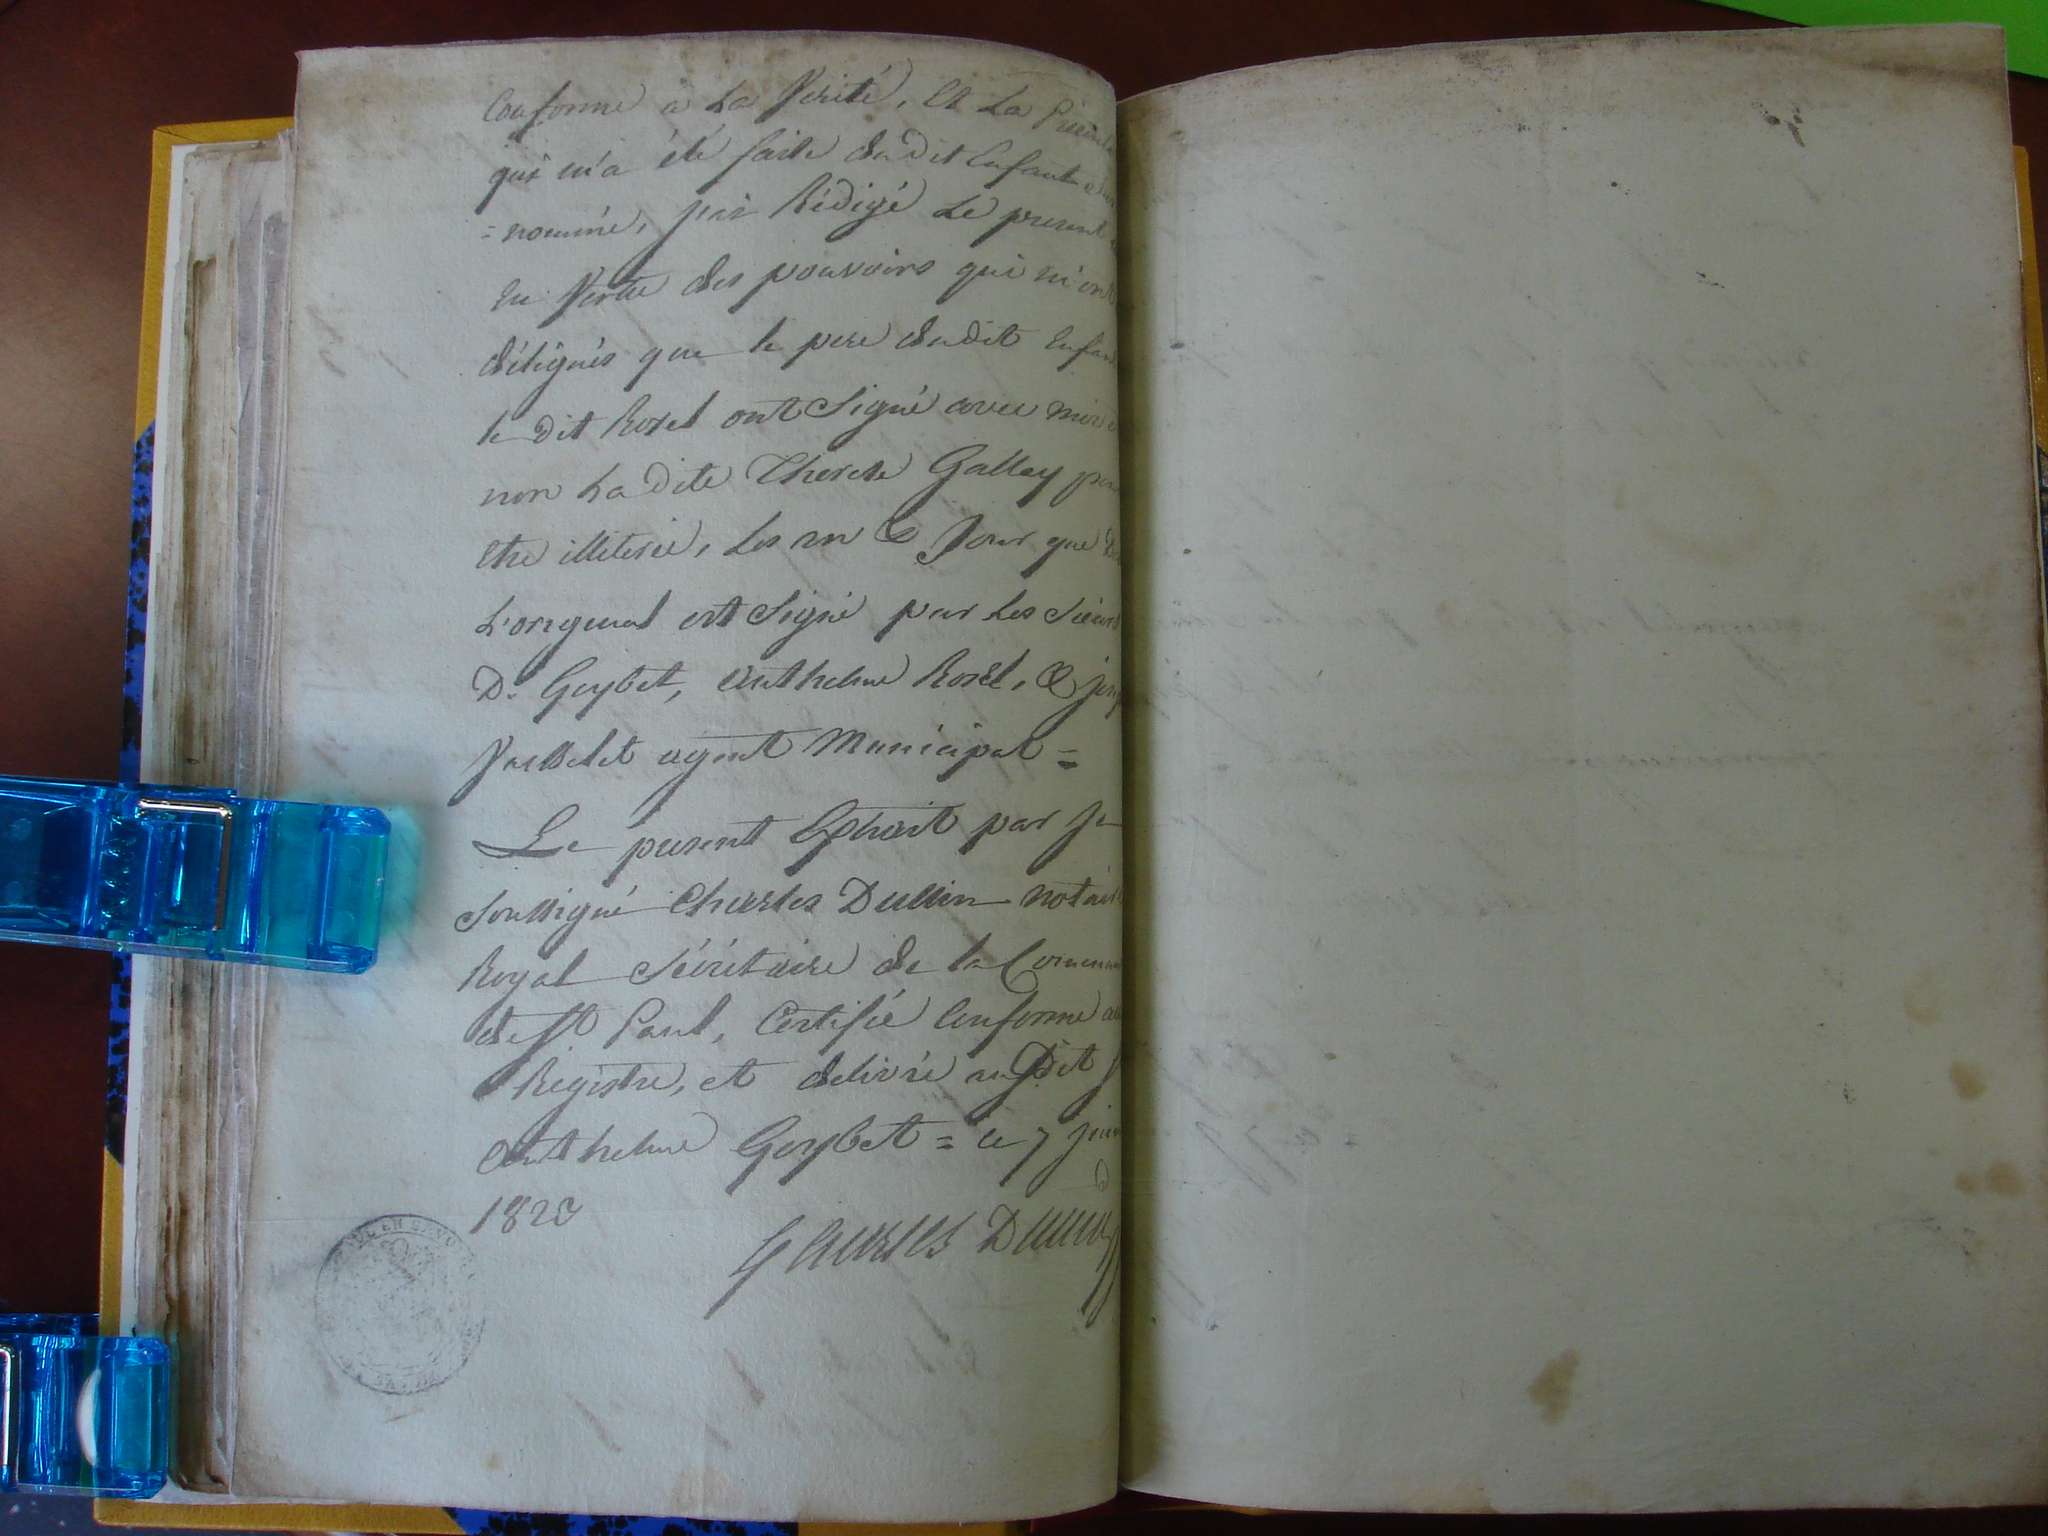 Conforme à La Verité, Et La
qui m'a été faite dudit Enfant
=nommé, j'ai Rédigé Le present
En Vertu des pouvoirs qui m'ont
délégués que le pere dudit Enfant
le dit Rosel ont Signé avec moi
non La dite Therese Gallay pour
Etre illiterée, Les an & Jour que
L'original est Signé par Les Sieurs
D. Goybet, Anthelme Rosel, &
Vuilliet agent Municipal =
Le present Extrait par Je
Soussigné Charles Dullin notaire
Royal Sécrétaire de la Commune
de St Paul, Certifié Conforme au
Régistre, et delivré au Dit
Anthelme Goybet = ce 7 juin
1820
Charles Dullin